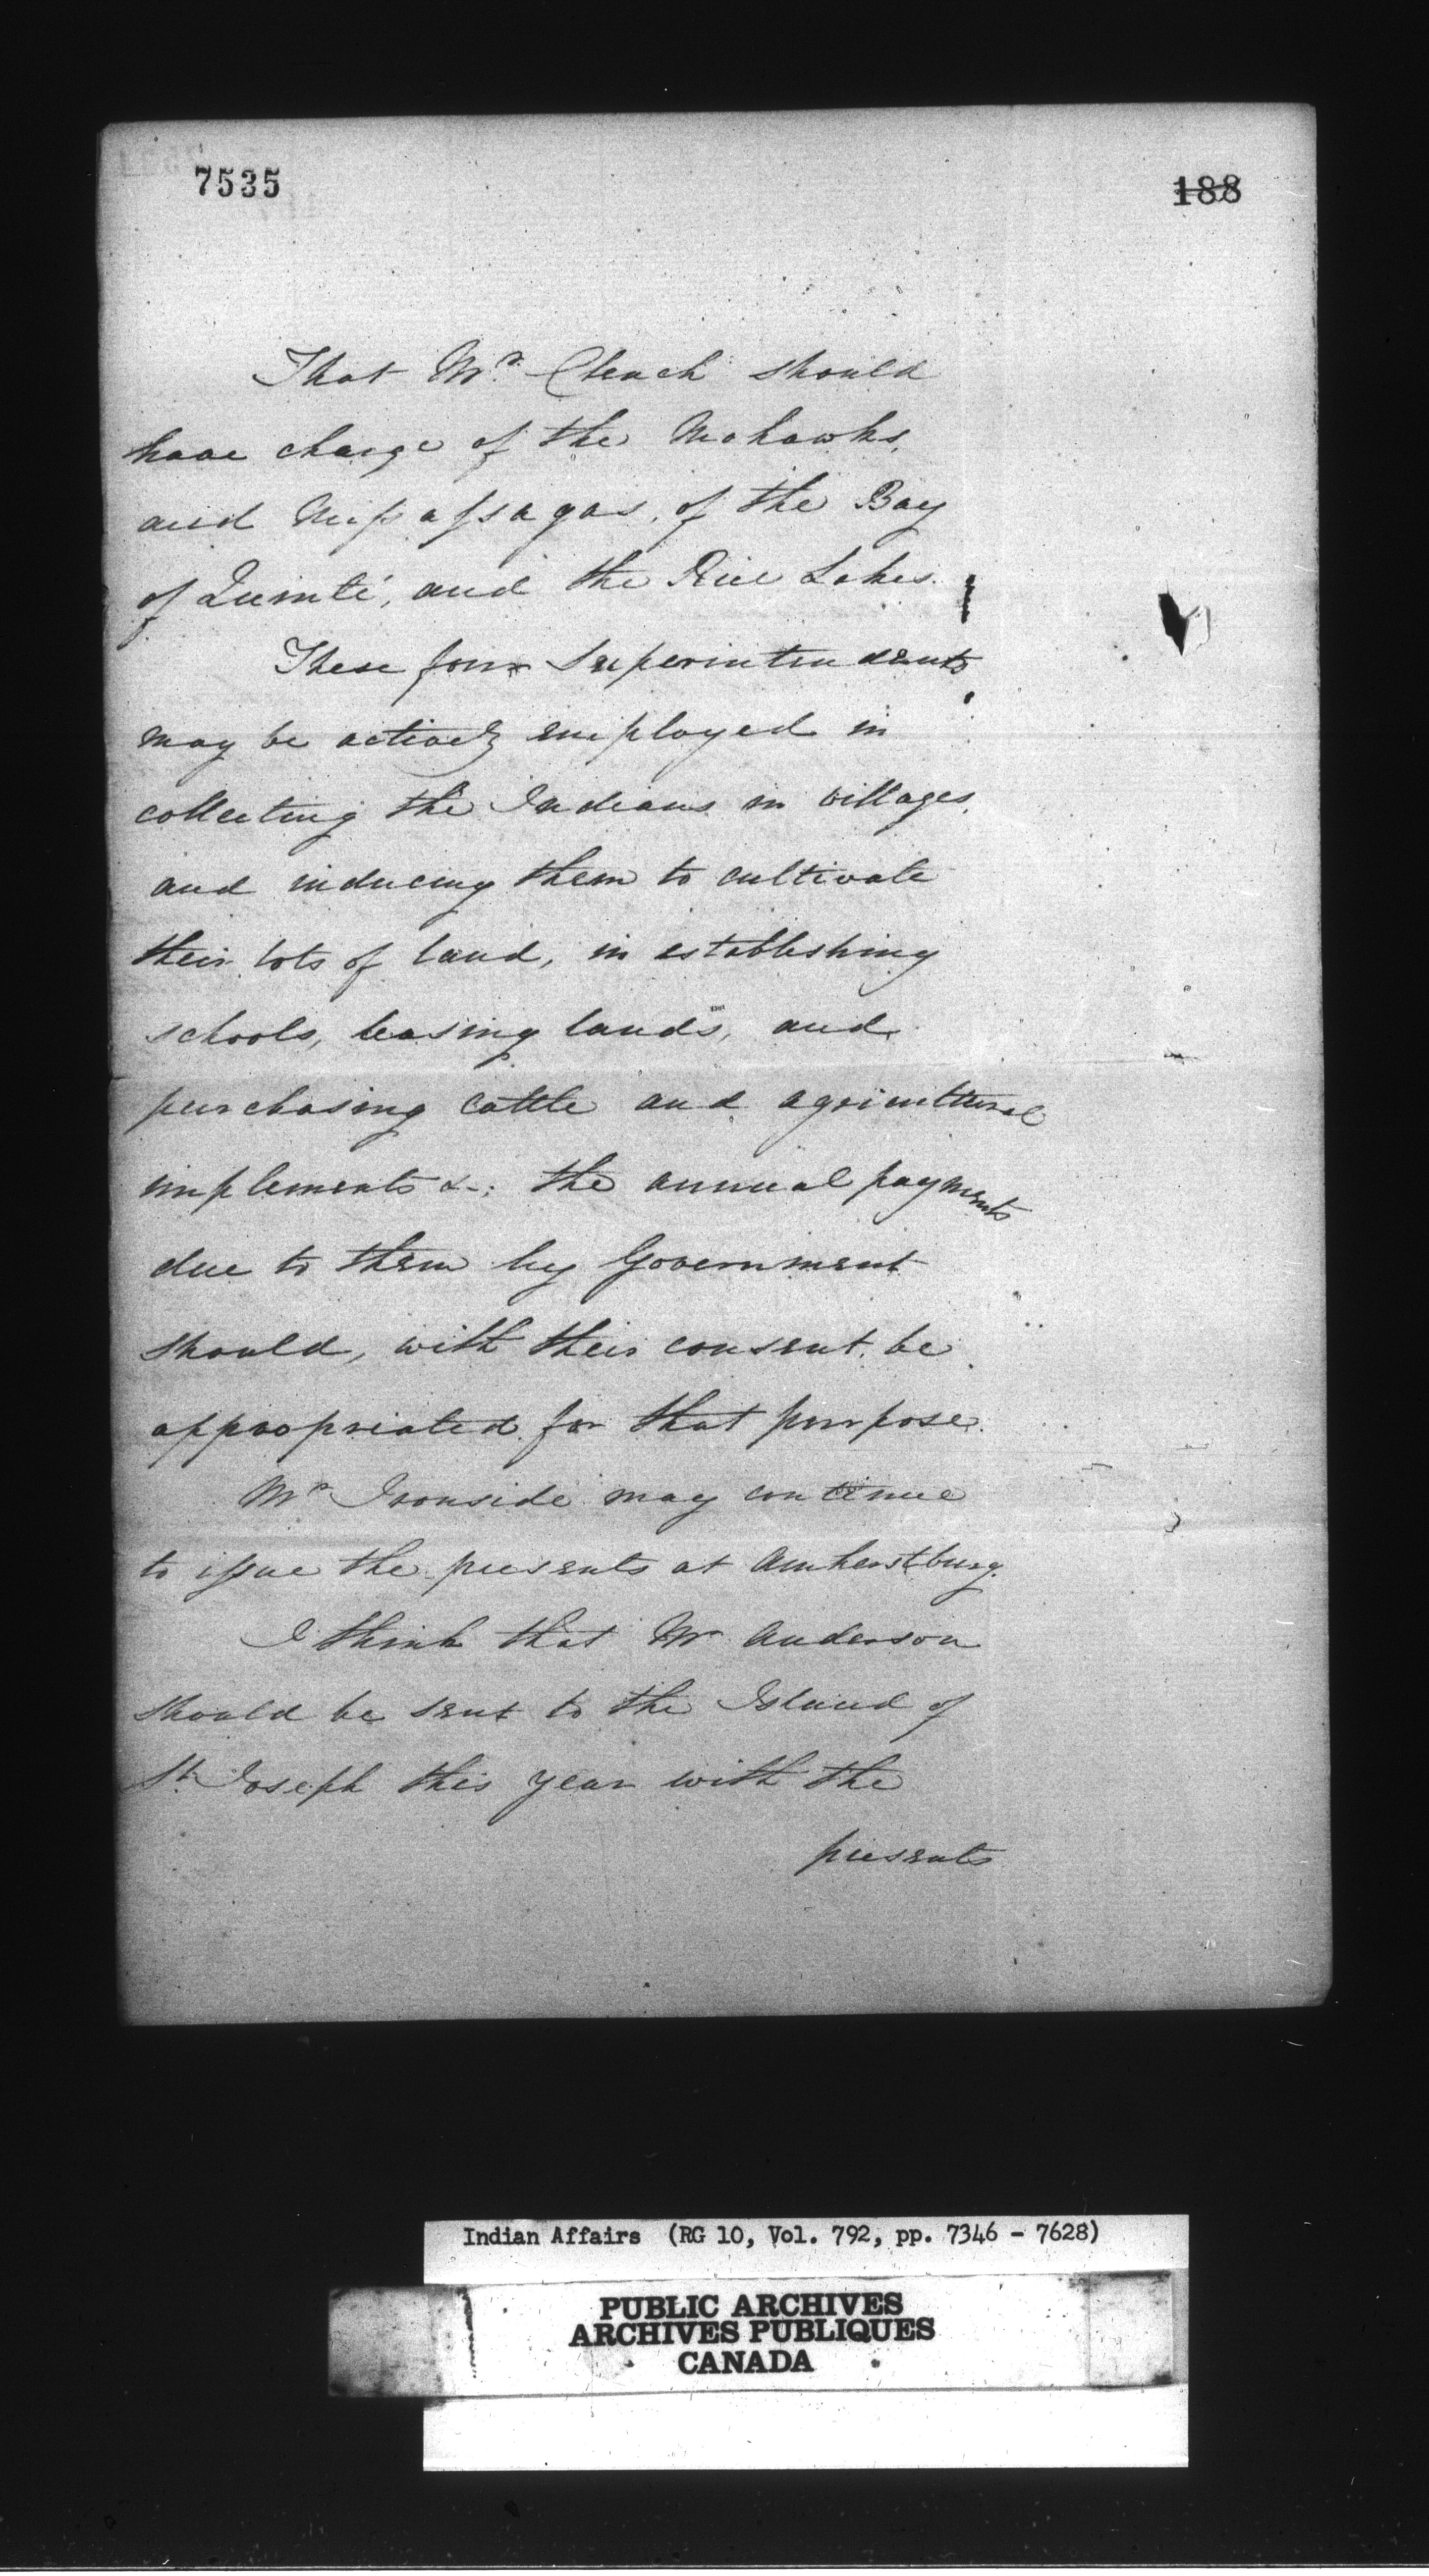 7535
188
That Mr. Cleach should
have charge of the Mohawks,
and Missassagas, of the Bay
of Quinté, and the Rice Lakes.
These four Superintendents
may be actively employed in
collecting the Indians in villages,
and inducing them to cultivate
their lots of land, in establishing
schools, leasing lands, and
purchasing cattle and agricultural
implements &c; the annual payments
due to them by Government
should, with their consent, be
appropriated for that purpose.
Mr Ironside may continue
to issue the presents at Amherstburg.
I think that Mr Anderson
should be sent to the Island of
St. Joseph this year with the
presents
Indian Affairs (RG 10, Vol. 792, pp. 7346 - 7628)
PUBLIC ARCHIVES
ARCHIVES PUBLIQUES
CANADA